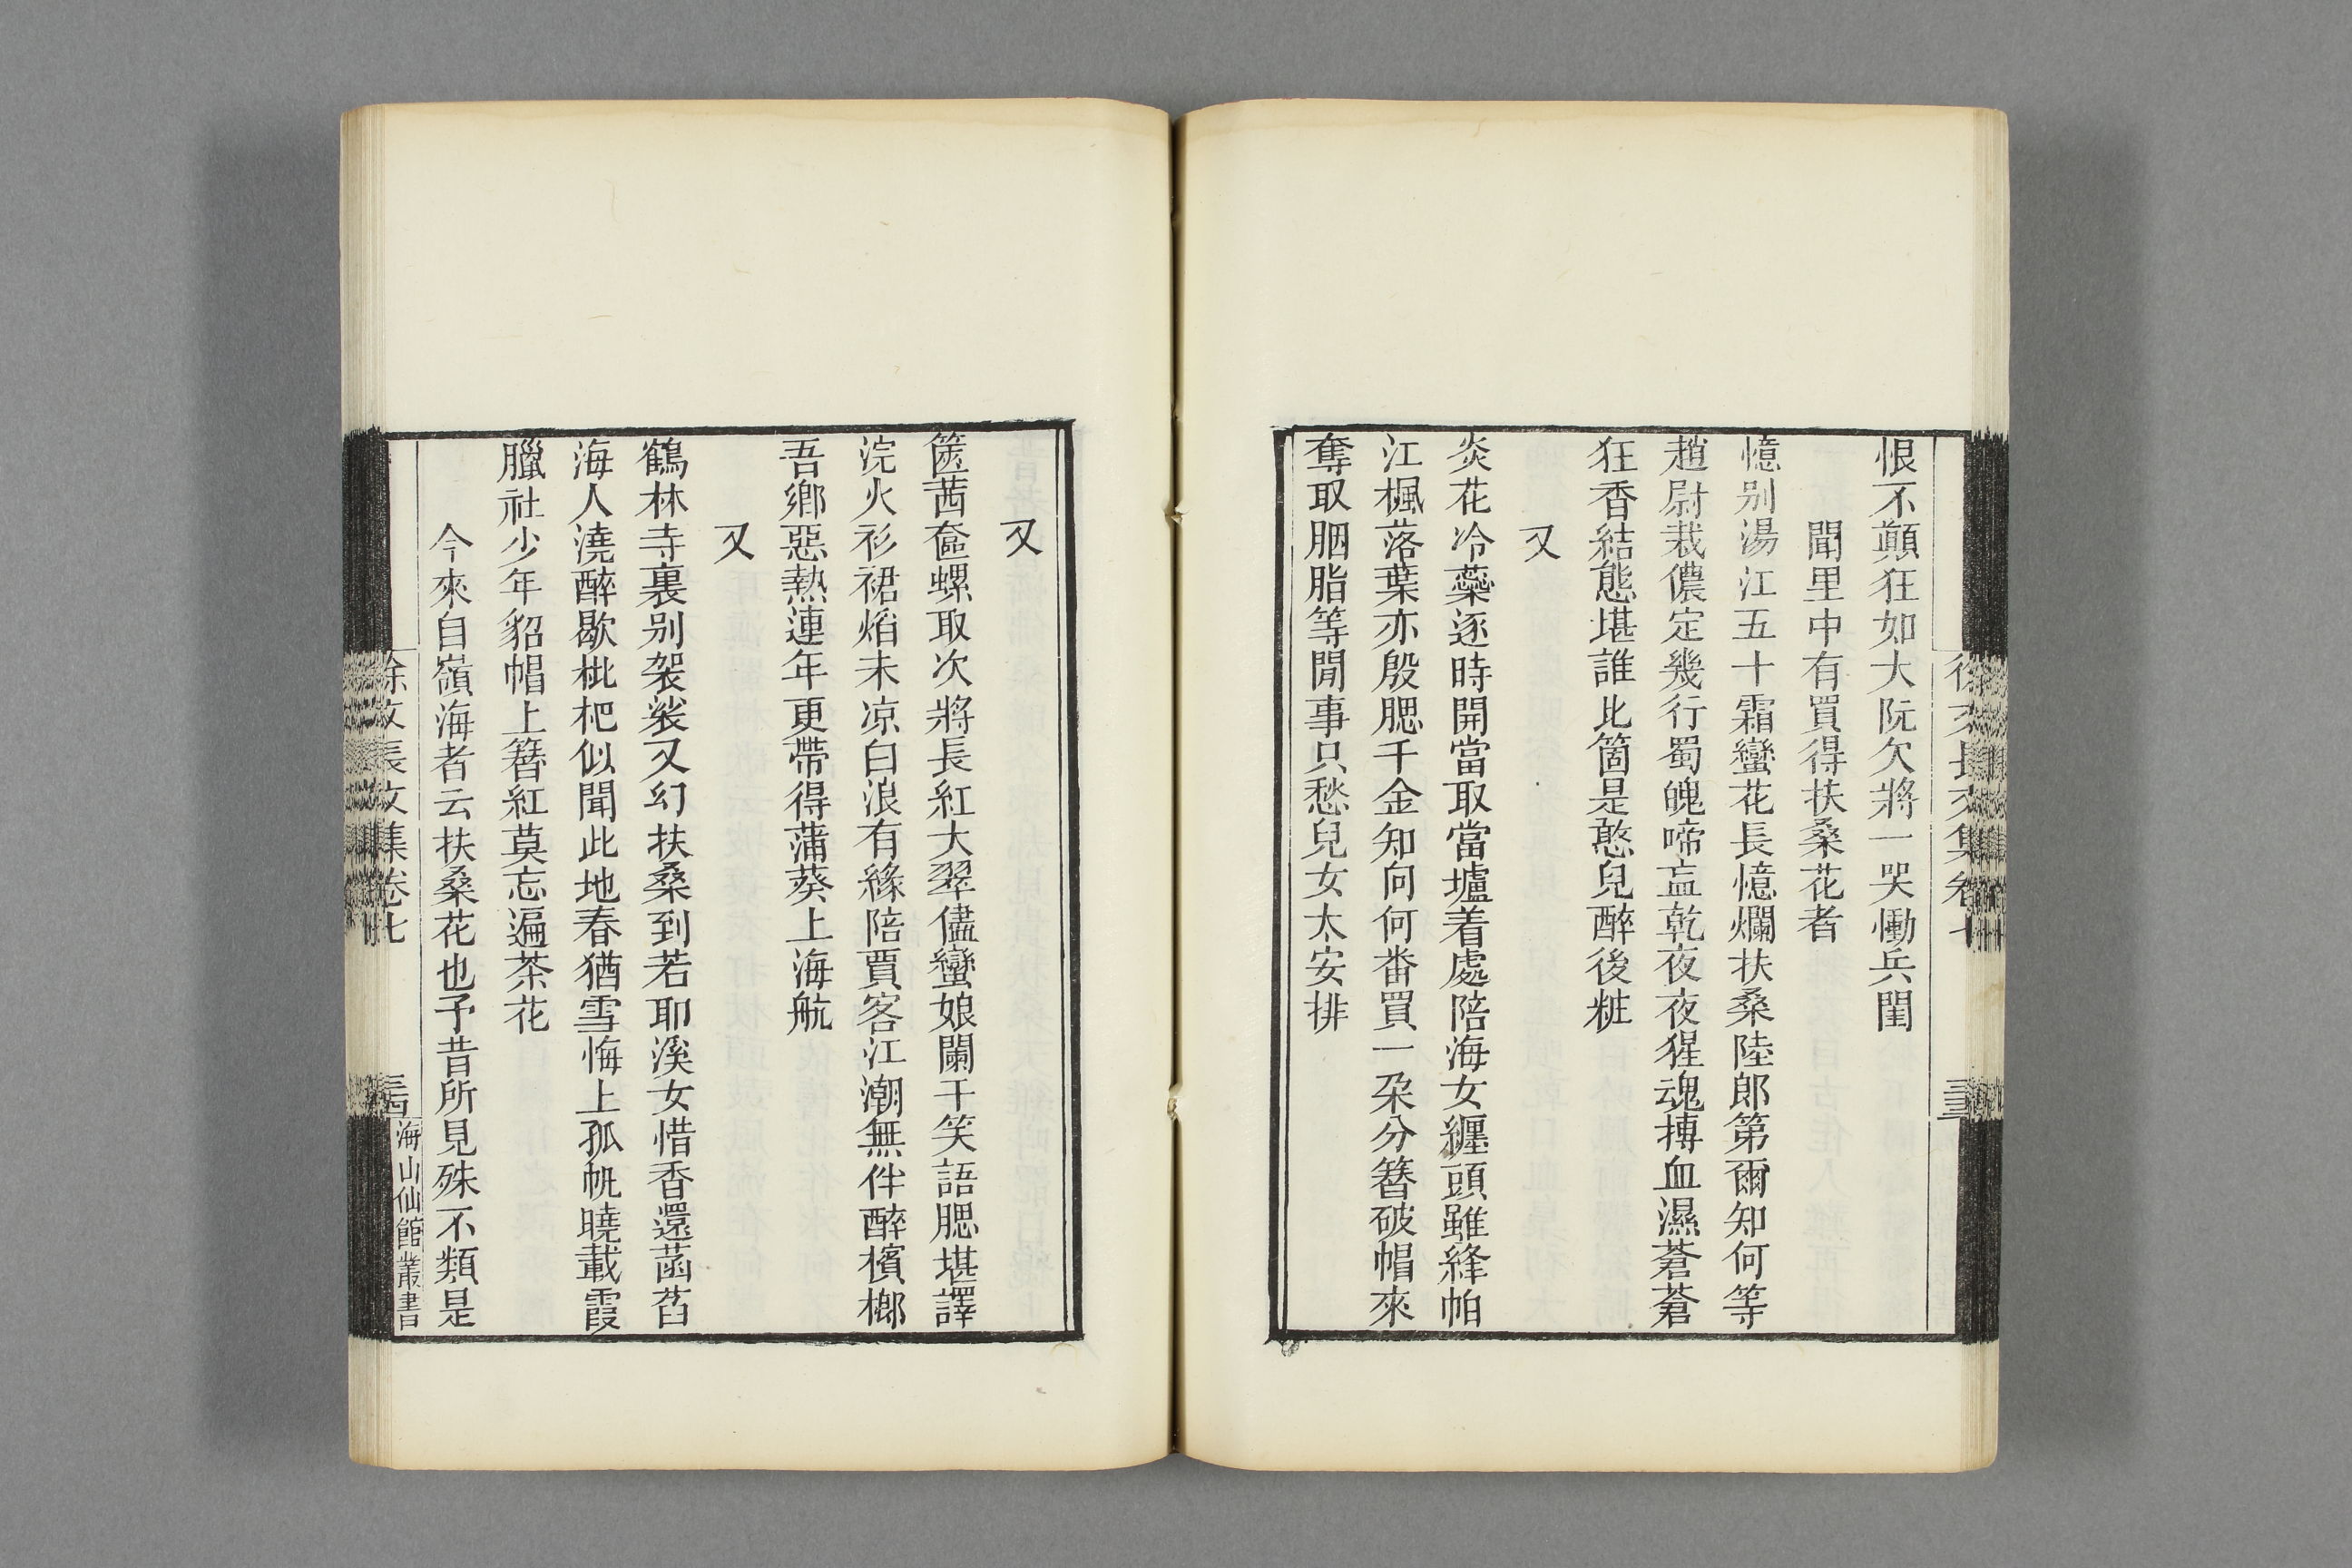 恨不顚狂如大阮欠將一哭慟兵閨
聞里中有買得扶桑花者
憶别湯江五十霜蠻花長憶爛扶桑陸郎第爾知何等
趙尉栽儂定幾行蜀魄啼盲乾夜夜猩魂搏血濕蒼蒼
狂香結態堪誰比箇是憨兒醉後粧
又
炎花冷蘂逐時開當取當壚着處陪海女纏頭雖絳帕
江楓落葉亦殷腮千金知向何畨買一朶分簪破帽來
奪取胭脂等閒事只愁兒女太安排
徐文長文集卷七
三三
又
篋茜奩螺取次將長紅大翠儘蠻娘闌干笑語腮堪譯
浣火衫裙焰未凉白浪有緣陪賈客江潮無伴醉檳榔
吾鄕惡熱連年更帶得蒲葵上海航
又
鶴林寺裏别袈裟又幻扶桑到若耶溪女惜香還菡萏
海人澆醉歇枇杷似聞此地春猶雪悔上孤帆曉載霞
臘社少年貂帽上簪紅莫忘遍茶花
今來自嶺海者云扶桑花也予昔所見殊不類是
徐文長文集卷七
三四
海山仙館叢書